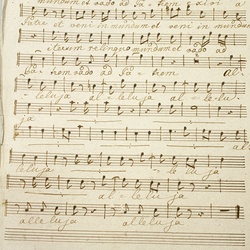 mundum et vado ad Patrem exivi a
Patre et veni in mundum et veni in mundum
iterum relinquo mundum et vado ad
Patrem vado ad Patrem al
leluja alleluja al-le-lu-
ja al
leluja al-le-luja
al-leluja
alleluja alleluja